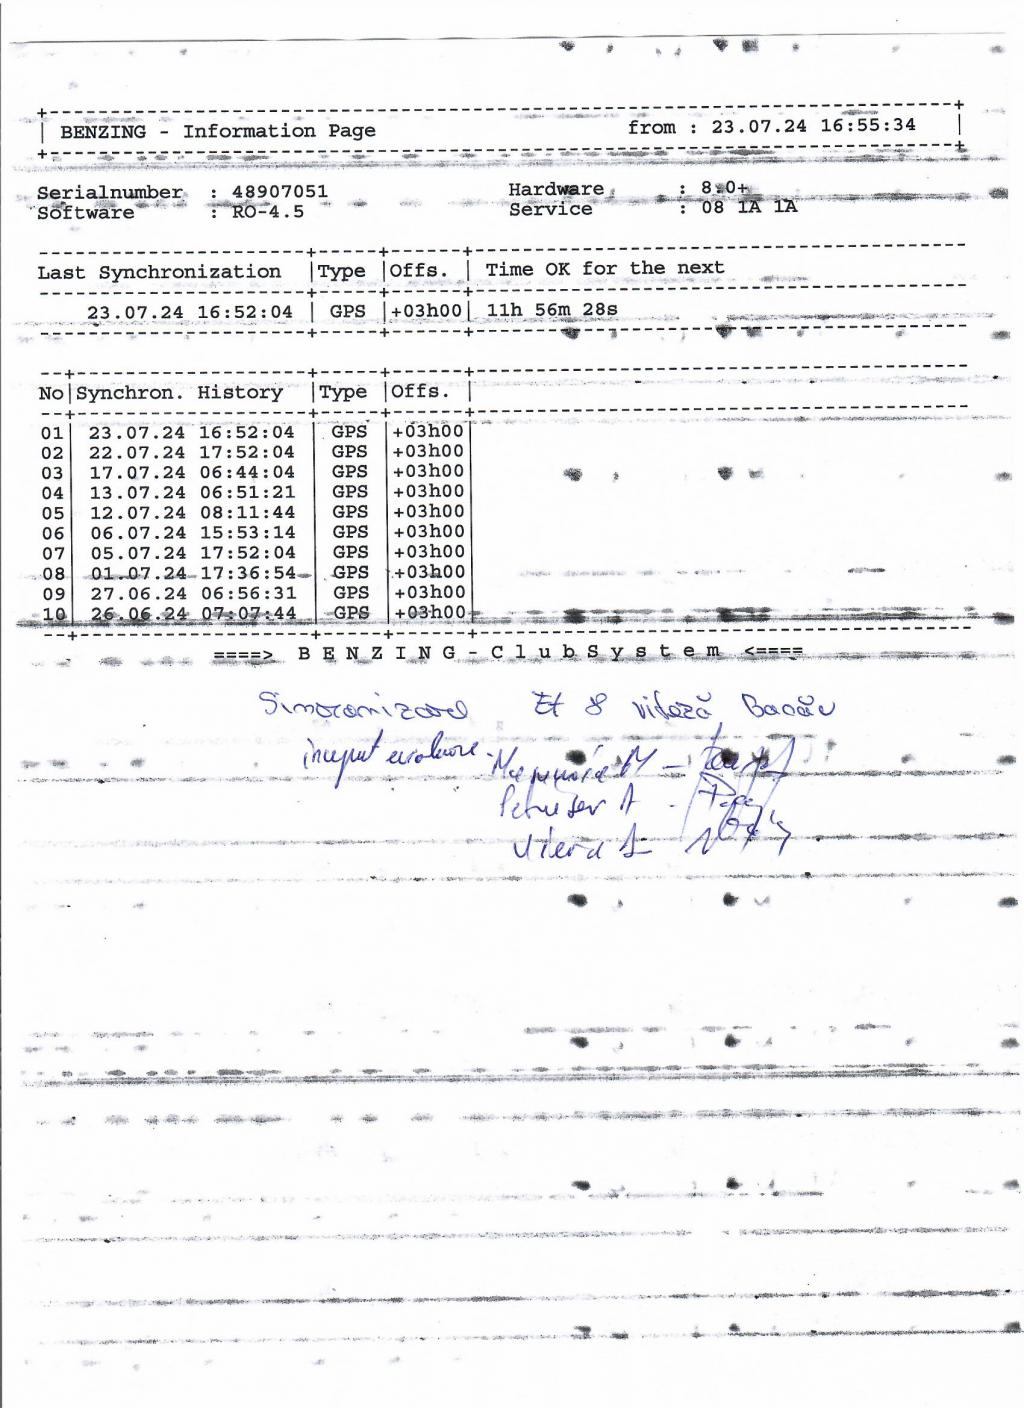 BENZING - Information Page from : 23.07.24 16:55:34
Serialnumber : 48907051 Hardware : 8.0+
Software : RO-4.5 Service : 08 1A 1A
Last Synchronization |Type |Offs. | Time OK for the next
23.07.24 16:52:04 | GPS |+03h00| 11h 56m 28s
No|Synchron. History |Type |Offs. |
01| 23.07.24 16:52:04 | GPS |+03h00|
02| 22.07.24 17:52:04 | GPS |+03h00|
03| 17.07.24 06:44:04 | GPS |+03h00|
04| 13.07.24 06:51:21 | GPS |+03h00|
05| 12.07.24 08:11:44 | GPS |+03h00|
06| 06.07.24 15:53:14 | GPS |+03h00|
07| 05.07.24 17:52:04 | GPS |+03h00|
08| 01.07.24 17:36:54 | GPS |+03h00|
09| 27.06.24 06:56:31 | GPS |+03h00|
10| 26.06.24 07:07:44 | GPS |+03h00|
====> B E N Z I N G - C l u b S y s t e m <====
Et 8 viteză Bacău
început